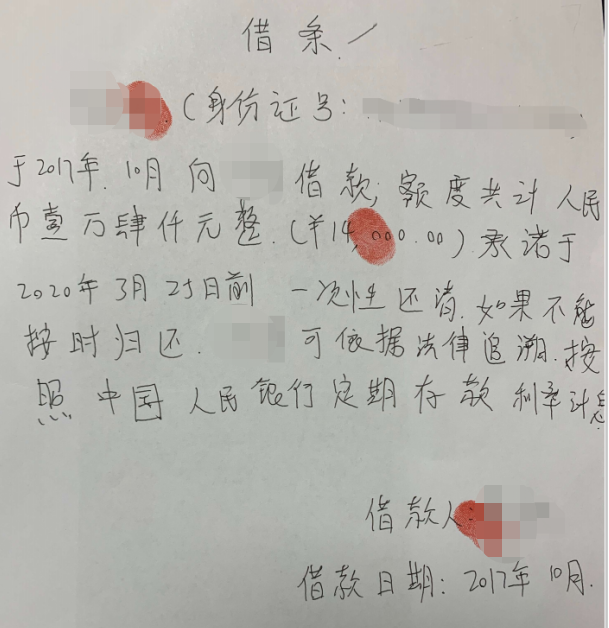 借条
(身份证号:
于2017年10月向 借款,额度共计人民
币壹万肆仟元整.(¥14,000.00).承诺于
2020年3月25日前 一次性还清.如果不能
按时归还. 可依据法律追溯.按
照中国人民银行定期存款利率计息.
借款人
借款日期:2017年10月.